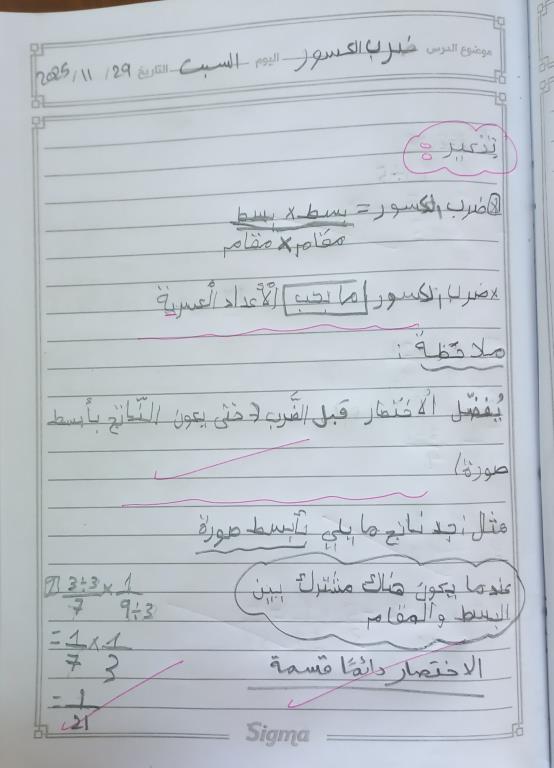 موضوع الدرس ضرب الكسور اليوم السبت التاريخ 29/ 11/ 2025
تذكير :
ضرب الكسور = بسط × بسط
مقام × مقام
* ضرب الكسور / ما بحب الأعداد الكسرية
ملاحظة :
يُفضّل الاختصار قبل الضّرب (حتى يكون النّاتج بأبسط
صورة/
مثل أجد ناتج ما يلي بأبسط صورة
عندما يكون هناك مشترك بين
البسط والمقام
الاختصار دائمًا قسمة
1] 3÷3/7 × 1/9÷3
= 1/7 × 1/3
= 1/21
Sigma